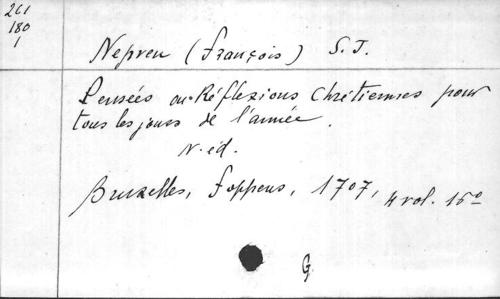 261
180
1
Nepveu (François) S. J.
Pensées ou Réflexions Chrétiennes pour
tous les jours de l'année.
N. éd.
Bruxelles, Foppens, 1707, 4 vol. 16°
G.